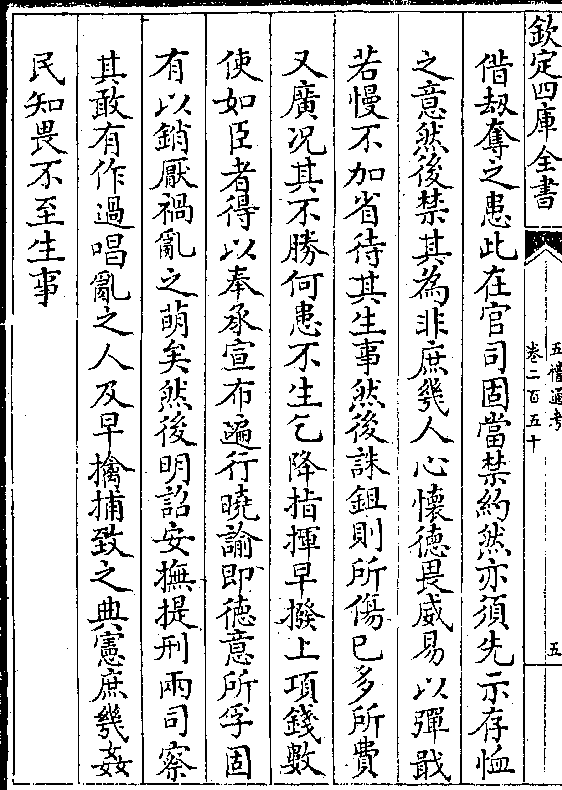 欽定四庫全書
五禮通考
卷二百五十
五
借刼奪之患此在官司固當禁約然亦須先示存恤
之意然後禁其為非庶幾人心懷德畏威易以彈戢
若慢不加省待其生事然後誅鉏則所傷已多所費
又廣况其不勝何患不生乞降指揮早撥上項錢數
使如臣者得以奉承宣布遍行曉諭即德意所孚固
有以銷厭禍亂之萌矣然後明詔安撫提刑兩司察
其敢有作過唱亂之人及早擒捕致之典憲庶幾姦
民知畏不至生事